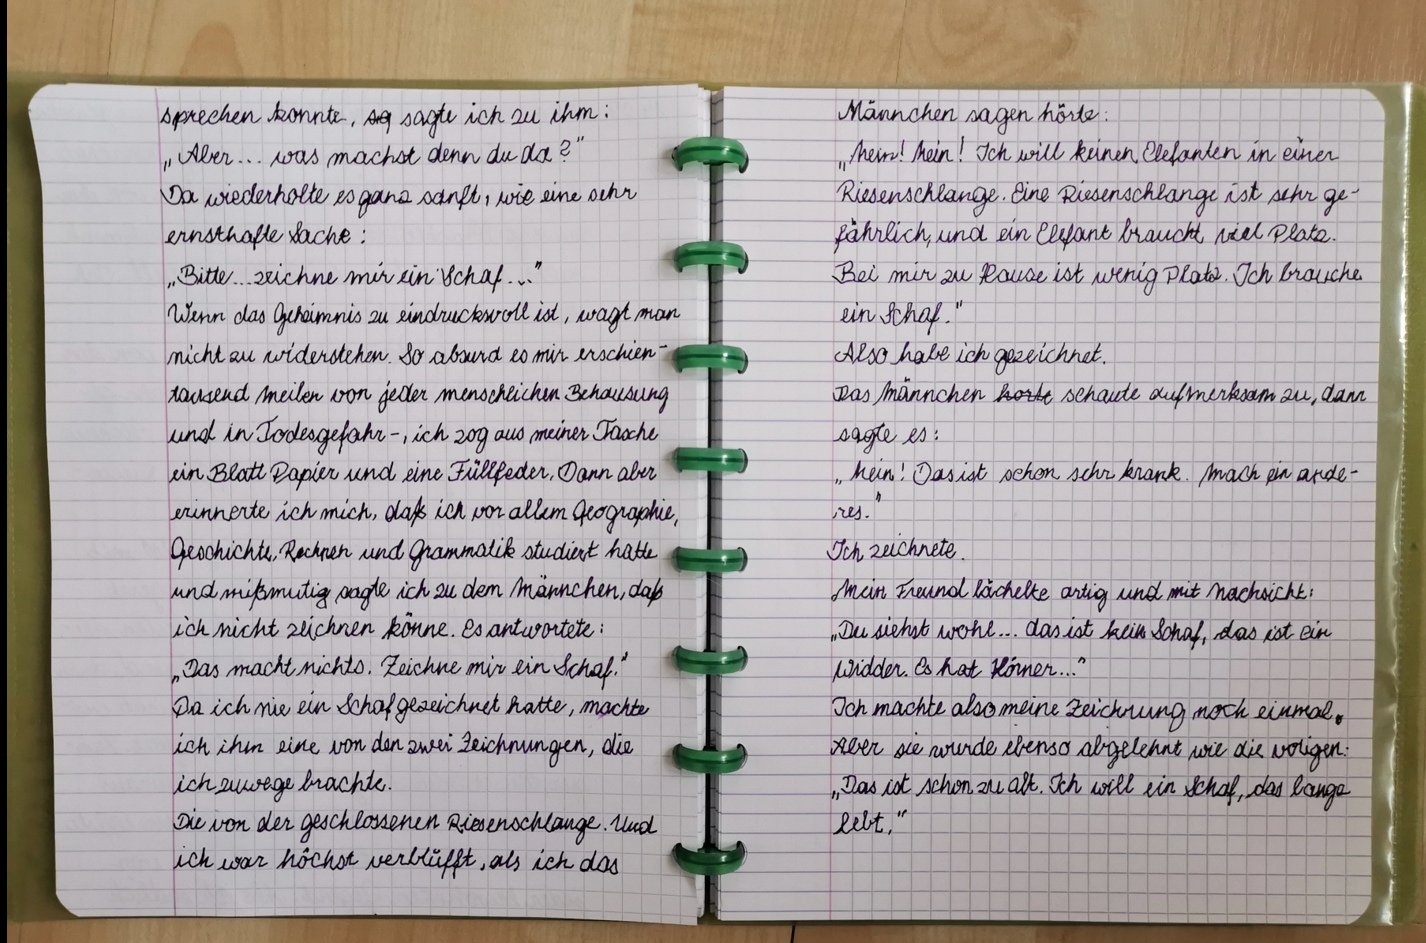 sprechen konnte, sag sagte ich zu ihm:
„Aber... was machst denn du da?"
Da wiederholte es ganz sanft, wie eine sehr
ernsthafte Sache:
„Bitte... zeichne mir ein Schaf..."
Wenn das Geheimnis zu eindrucksvoll ist, wagt man
nicht zu widerstehen. So absurd es mir erschien-
tausend Meilen von jeder menschlichen Behausung
und in Todesgefahr-, ich zog aus meiner Tasche
ein Blatt Papier und eine Füllfeder. Dann aber
erinnerte ich mich, daß ich vor allem Geographie,
Geschichte, Rechnen und Grammatik studiert hatte
und mißmutig sagte ich zu dem Männchen, daß
ich nicht zeichnen könne. Es antwortete:
„Das macht nichts. Zeichne mir ein Schaf."
Da ich nie ein Schaf gezeichnet hatte, machte
ich ihm eine von den zwei Zeichnungen, die
ich zuwege brachte.
Die von der geschlossenen Riesenschlange. Und
ich war höchst verblüfft, als ich das
Männchen sagen hörte:
„Nein! Nein! Ich will keinen Elefanten in einer
Riesenschlange. Eine Riesenschlange ist sehr ge-
fährlich, und ein Elefant braucht viel Platz.
Bei mir zu Hause ist wenig Platz. Ich brauche
ein Schaf."
Also habe ich gezeichnet.
Das Männchen hörte schaute aufmerksam zu, dann
sagte es:
„Nein! Das ist schon sehr krank. Mach ein ande-
res."
Ich zeichnete.
Mein Freund lächelte artig und mit Nachsicht:
„Du siehst wohl... das ist kein Schaf, das ist ein
Widder. Es hat Hörner..."
Ich machte also meine Zeichnung noch einmal.
Aber sie wurde ebenso abgelehnt wie die voligen:
„Das ist schon zu alt. Ich will ein Schaf, das lange
lebt."